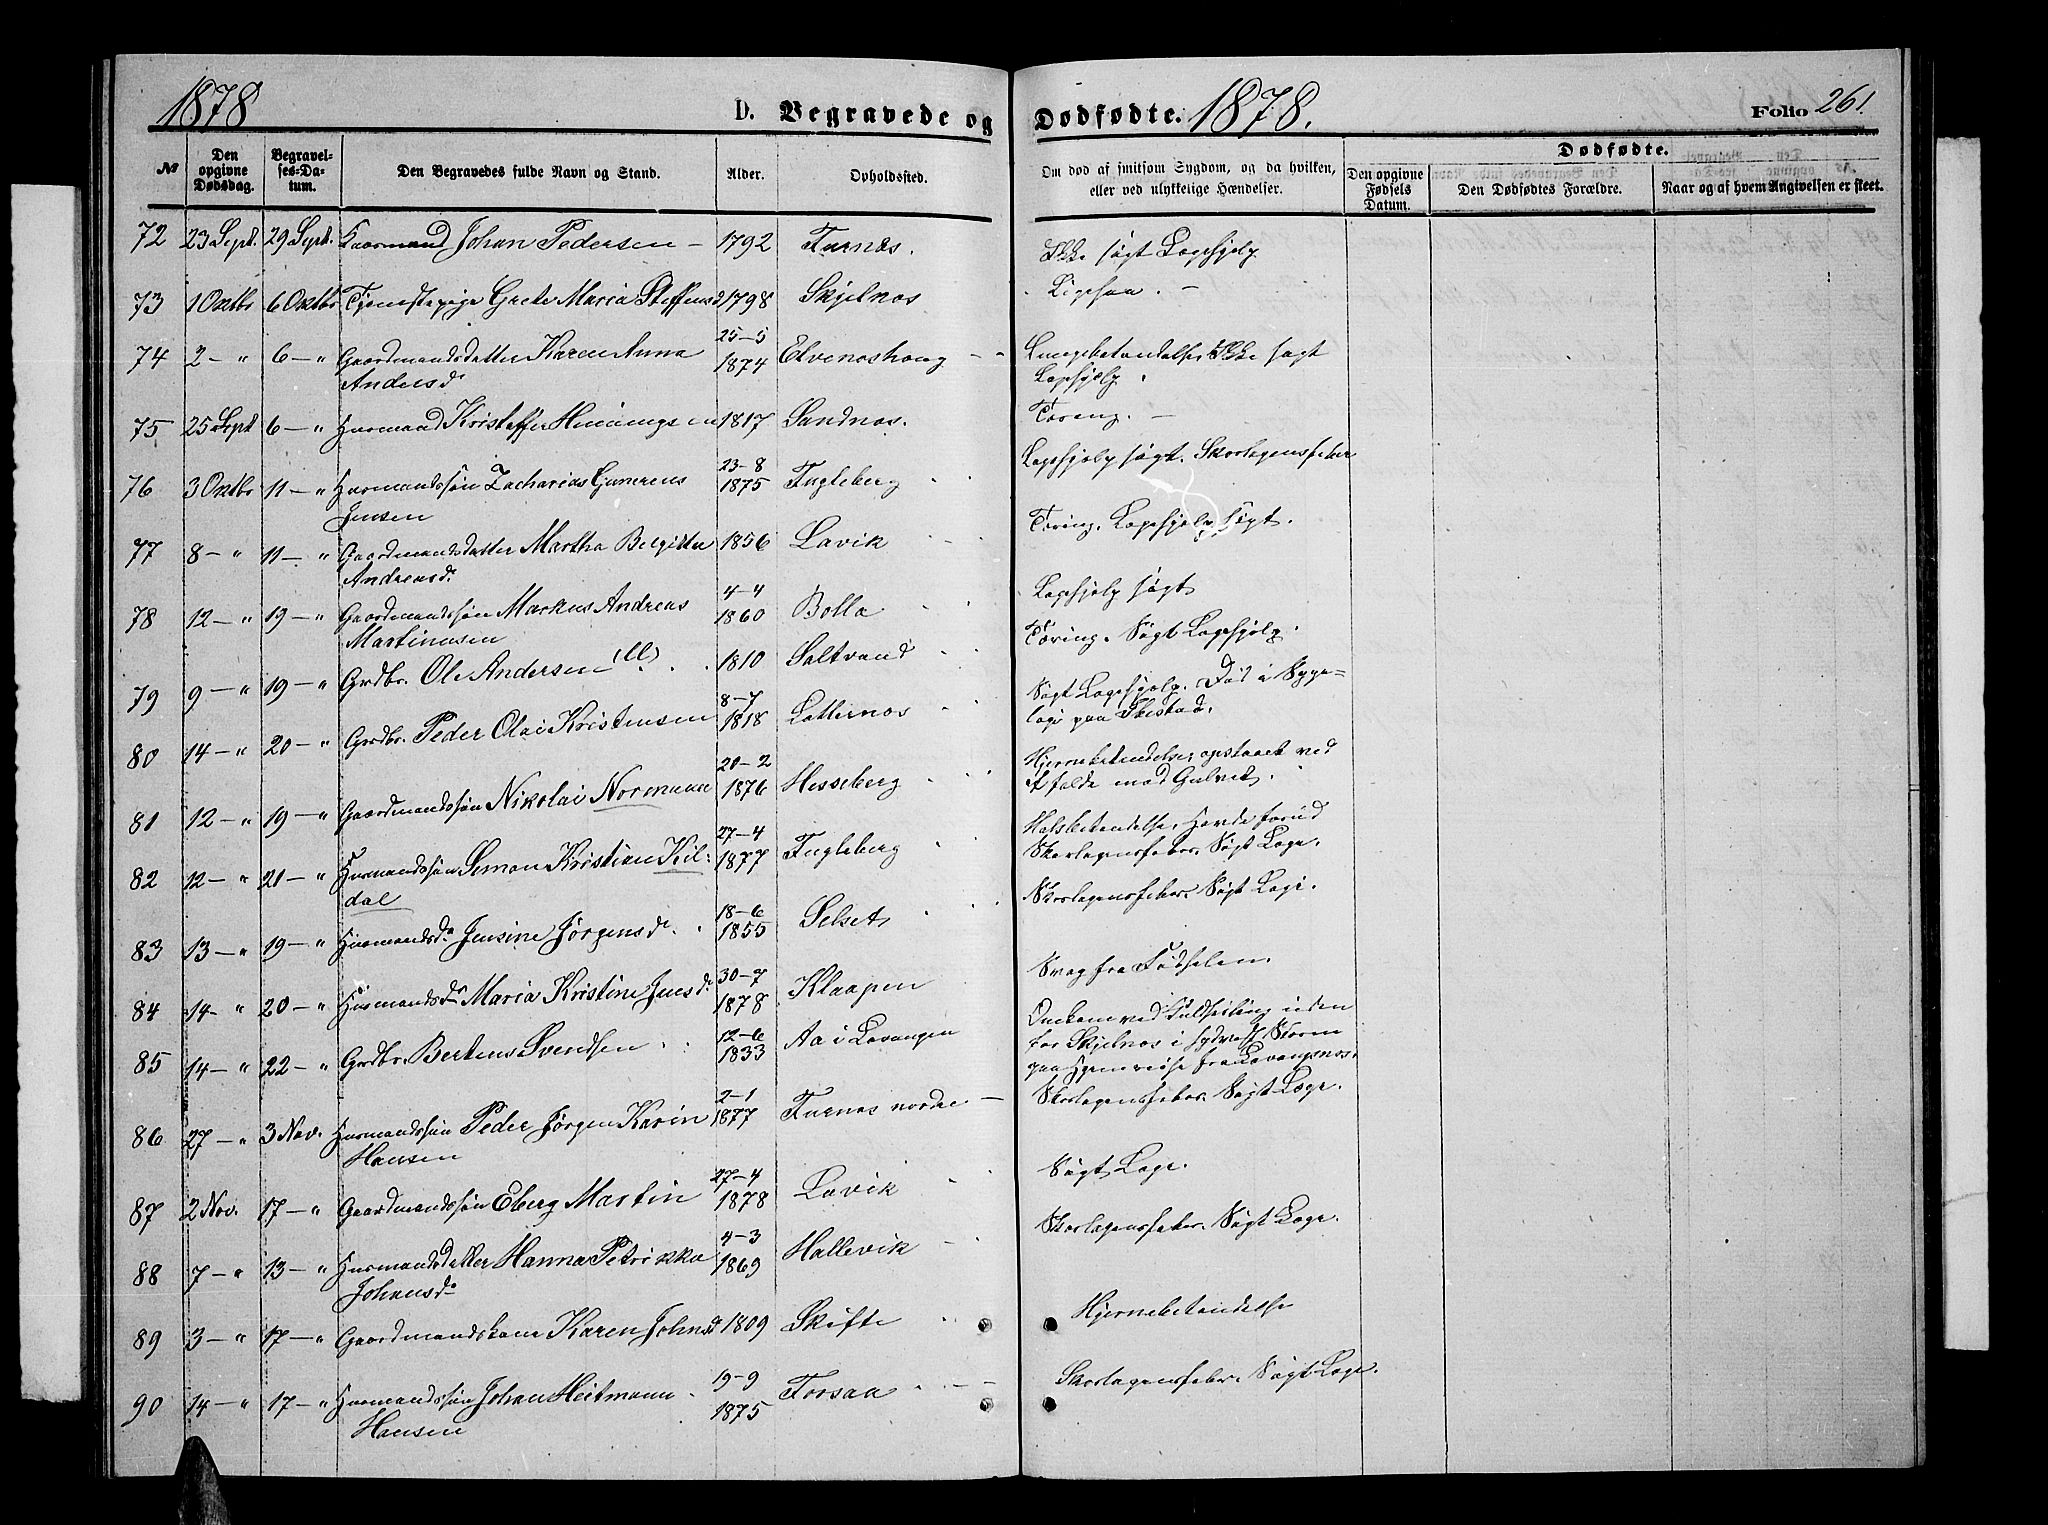 1878
D. Begravede og
Dødfødte. 1878.
Folio 261.
№
Den opgivne Dødsdag.
Begravelses-Datum.
Den Begravedes fulde Navn og Stand.
Alder.
Opholdssted.
Om død af smitsom Sygdom, og da hvilken, eller ved ulykkelige Hændelser.
Dødfødte.
Den opgivne Fødsels Datum.
Den Dødfødtes Forældre.
Naar og af hvem Angivelsen er skeet.
72 23 Sept. 29 Sept. Kaarmand Johan Pedersen – 1792 Furnæs. Ikke søgt Lægehjelp
73 1 Oktbr 6 Oktbr Tjenestepige Grete Maria Steffensd 1798 Skjelnæs Ligesaa. –
74 2 – " 6 – " Gaardmandsdatter Karen Anna 25–5 1874 Elvenæshaug Lungebetændelse, Ikke søgt
Andersdr Lægehjælp.
75 25 Sept 6 – " Husmand Kristoffer Henningsen 1817 Sandnæs. Tæring. –
76 3 Oktbr 11 – " Husmandssøn Zacharias 23–8 1875 Fugleberg Lægehjelp søgt. Skarlagensfeber
Jensen
77 8 – " 11 – " Gaardmandsdatter Martha Bergitte 1856 Lavik Tæring. Lægehjelp søgt.
Andreasdr
78 12 – " 19 – " Gaardmandssøn Markus Andreas 4–4 1860 Bolla Lægehjelp søgt
Martinusen
79 9 – " 19 – " Grdbr. Ole Andersen 1810 Saltvand Tæring. Søgt Lægehjelp.
80 14 – " 20 – " Grdbr. Peder Olai Kristensen 8–7 1818 Søgt Lægehjelp. Død i Syge=
leie paa
81 12 – " 19 – " Gaardmandssøn Nikolai Normann 20–2 1876 Hesseberg Hjernebetændelse, opstaaet ved
at falde mod Gulvet.
82 12 – " 21 – " Husmandssøn Simon Kristian Kil= 27–4 1877 Fugleberg Halsbetændelse, Havde forud
dal Skarlagensfeber. Søgt Læge.
83 13 – " 19 – " Husmandsdr Jensine Jørgensdr. 18–6 1855 Selset Skarlagensfeber. Søgt Læge.
84 14 – " 20 – " Husmandsdr Maria Kristine Jensdr 30–7 1878 Klaapen Svag fra Fødselen.
85 14 – " 22 – " Grdbr. Bertens Svendsen 12–6 1833 Aa i Lavangen Omkom ved Kuldseiling uden
for Skjelnæs i Sydvest Storm
paa Hjemreise fra Lavangsnæs.
86 27 – " 3 Nov. Husmandssøn Peder Jørgen Karin 2–1 1877 Furnæs nordre – Skarlagensfeber. Søgt Læge.
Hansen
87 2 Nov. 17 – " Gaardmandssøn Eberg Martin 27–4 1878 Lavik Søgt Læge.
88 7 – " 13 – " Husmandsdatter Hanna Petrikka 4–3 1869 Hallevik Skarlagensfeber. Søgt Læge.
Johansdr
89 3 – " 17 – " Gaardmandskone Karen Johnsd 1809 Skifte Hjernebetændelse
90 14 – " 17 – " Husmandssøn Johan Heitmann 19–9 1875 Forsaa Skarlagensfeber. Søgt Læge.
Hansen